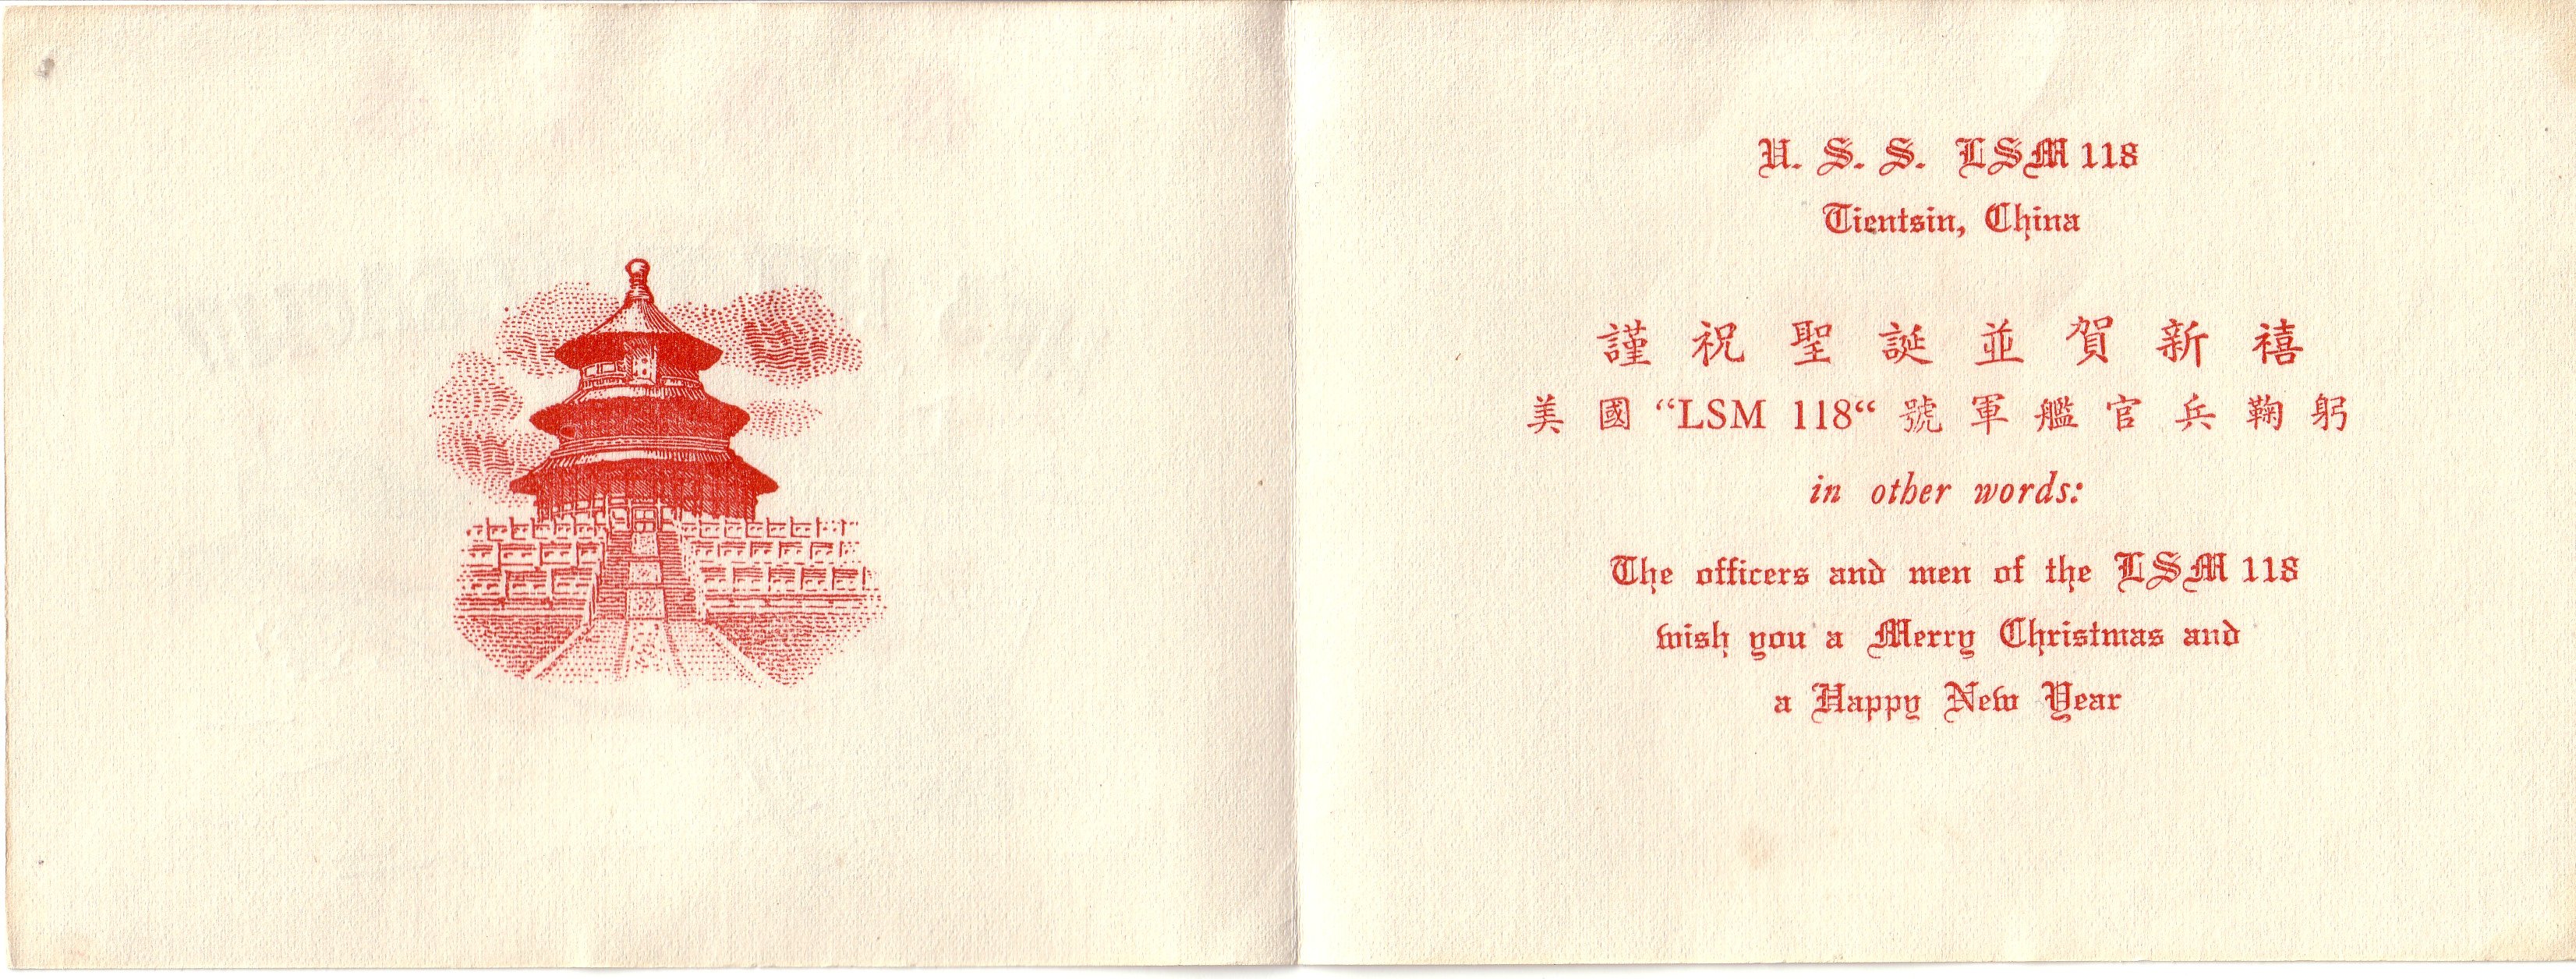 U. S. S. LSM 118
Tientsin, China
謹祝聖誕並賀新禧
美國“LSM 118“號軍艦官兵鞠躬
in other words:
The officers and men of the LSM 118
wish you a Merry Christmas and
a Happy New Year